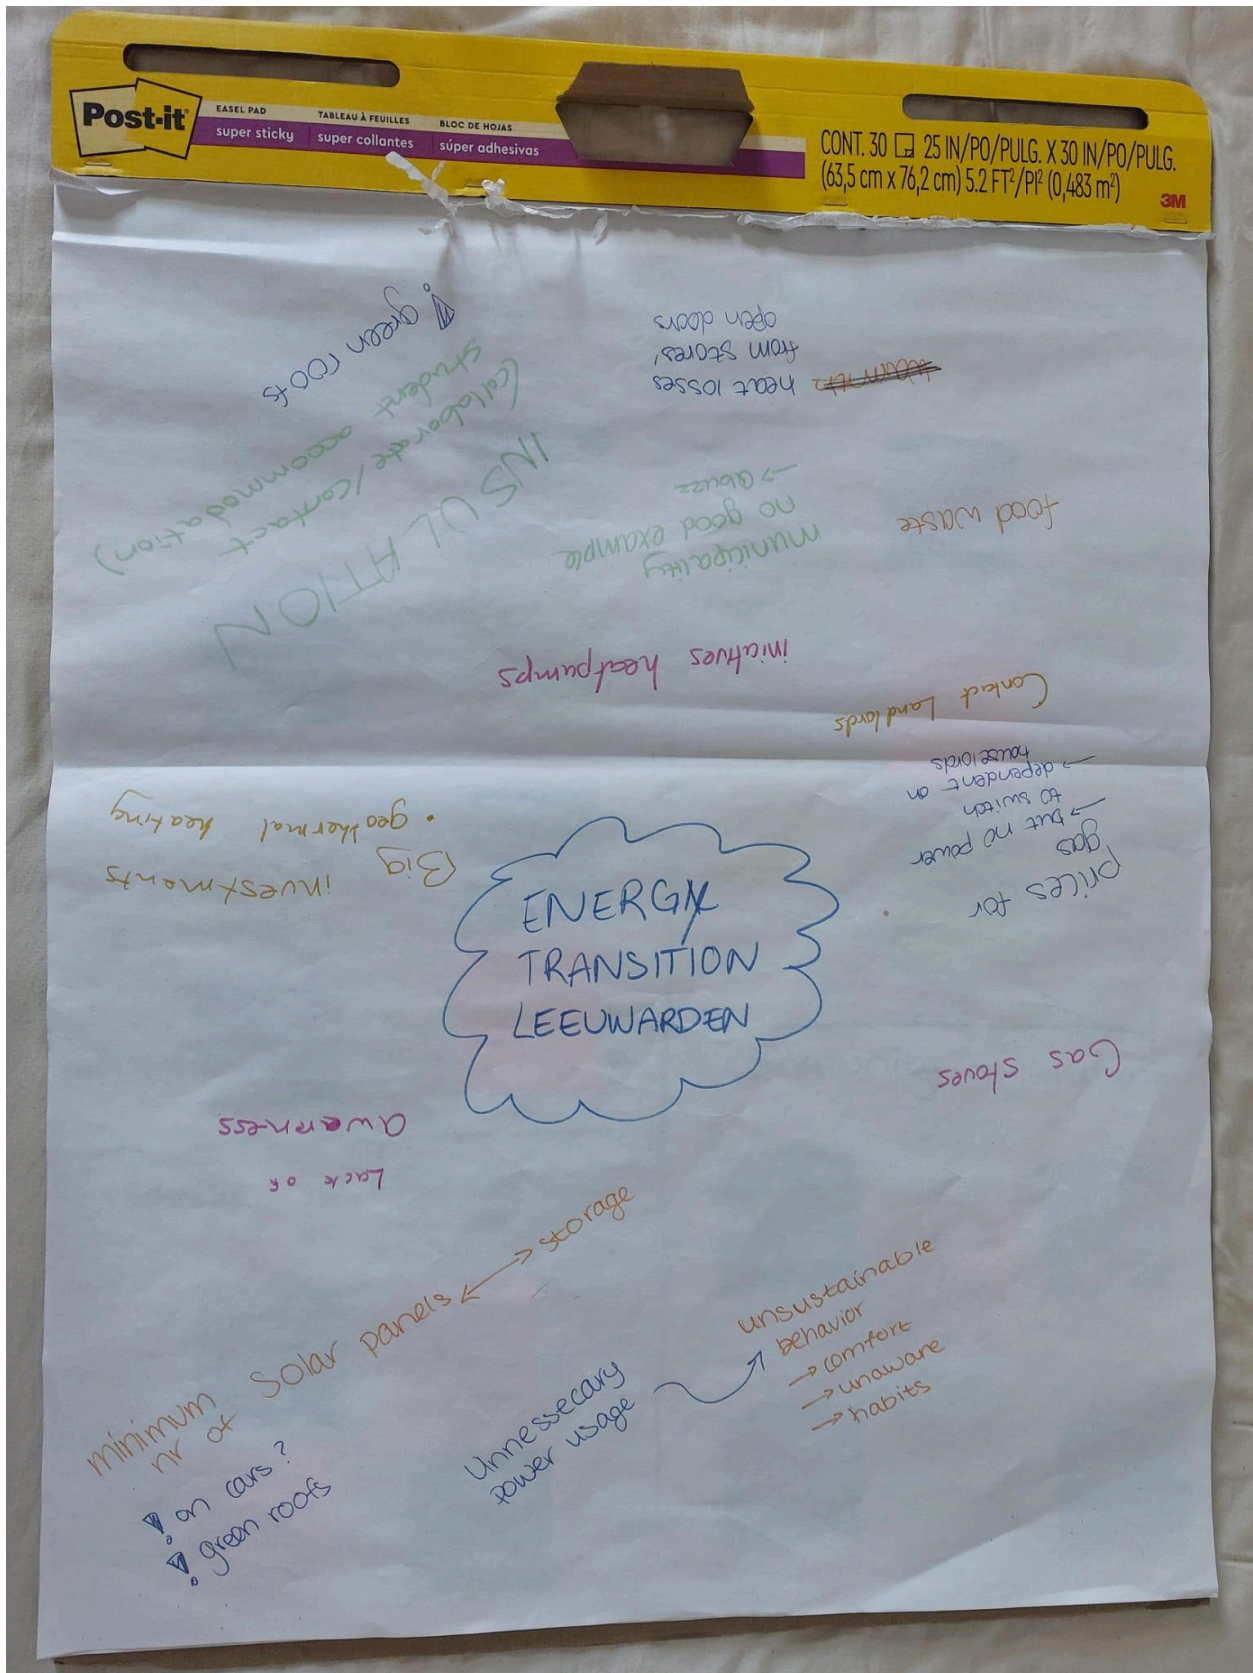 Post-it
EASEL PAD
super sticky
TABLEAU À FEUILLES
super collantes
BLOC DE HOJAS
súper adhesivas
CONT. 30 25 IN/PO/PULG. X 30 IN/PO/PULG.
(63,5 cm x 76,2 cm) 5.2 FT²/PI² (0,483 m²)
3M
! green roofs
(collaborate/contact
student accommodation)
INSULATION
heat losses
from stores'
open doors
municipality
no good example
→ abuzz
food waste
iniatives heatpumps
Contact Landlords
prices for
gas
→ but no power
to switch
→ dependent on
houselords
Big investments
• geothermal heating
ENERGY
TRANSITION
LEEUWARDEN
Gas stoves
Lack of
awarness
minimum
nr of
Solar panels ↔ storage
! on cars?
! green roofs
Unnessecary
power usage
unsustainable
behavior
→ comfort
→ unaware
→ habits